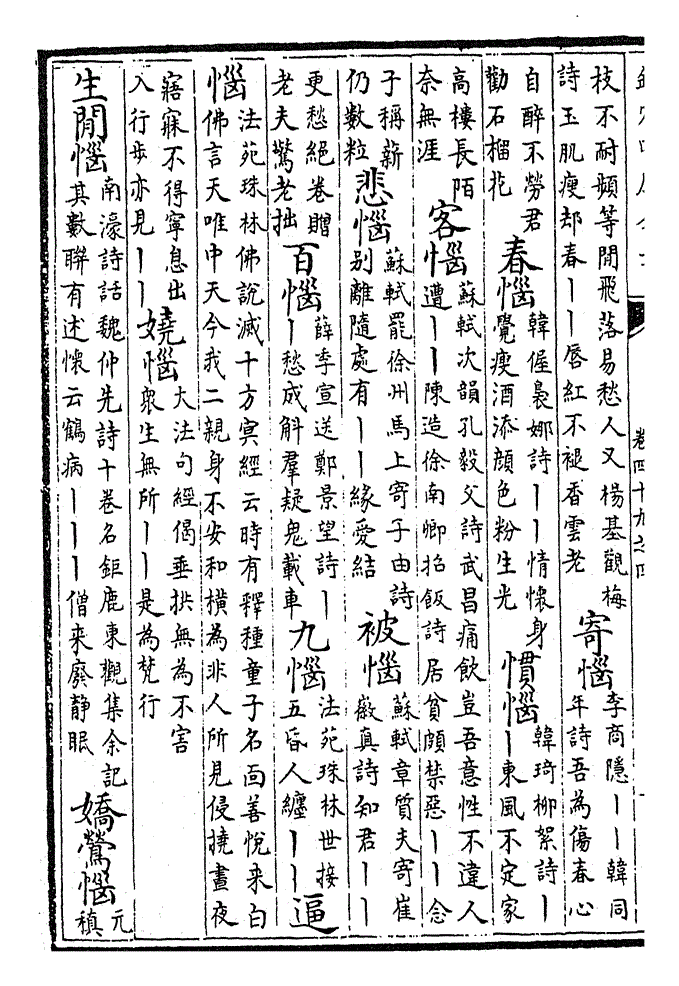 卷四十九之四
枝不耐頻等閒飛落易愁人又楊基觀梅
詩玉肌瘦却春丨丨唇紅不褪香雲老
寄惱
李商隱丨丨韓同
年詩吾為傷春心
自醉不勞君
勸石榴花
春惱
韓偓裊娜詩丨丨情懷身
覺瘦酒添顔色粉生光
慣惱
韓琦柳絮詩丨
丨東風不定家
高樓長陌
奈無涯
客惱
蘇軾次韻孔毅父詩武昌痛飲豈吾意性不違人
遭丨丨陳造徐南卿招飯詩居貧頗禁惡丨丨念
子稱薪
仍數粒
悲惱
蘇軾罷徐州馬上寄子由詩
别離隨處有丨丨緣愛結
被惱
蘇軾章質夫寄崔
徽真詩知君丨丨
更愁絕卷贈
老夫驚老拙
百惱
薛季宣送鄭景望詩丨
丨愁成斛羣疑鬼載車
九惱
法苑珠林世接
五昏人纏丨丨
逼
惱
法苑珠林佛說滅十方冥經云時有釋種童子名面善悅來白
佛言天唯中天今我二親身不安和橫為非人所見侵撓晝夜
寤寐不得寧息出
入行步亦見丨丨
嬈惱
大法句經偈垂拱無為不害
衆生無所丨丨是為梵行
生閒惱
南濠詩話魏仲先詩十卷名鉅鹿東觀集余記
其數聯有述懷云鶴病丨丨丨僧来廢靜眠
嬌鶯惱
元
稹